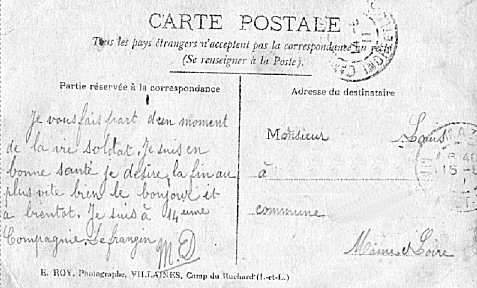 CARTE POSTALE
Tous les pays étrangers n'acceptent pas la correspondance au recto
(Se renseigner à la Poste).
Partie réservée à la correspondance
Je vous fais part d'un moment
de la vie soldat. Je suis en
bonne santé je desire la fin au
plus vite bien le bonjour et
a bientot. Je suis à 14eme
Compagnie.
M.D
Adresse du destinataire
Monsieur Louis
à
commune
Maine et Loire
E. ROY, Photographe, VILLAINES, Camp du Ruchard (I.-et-L.)